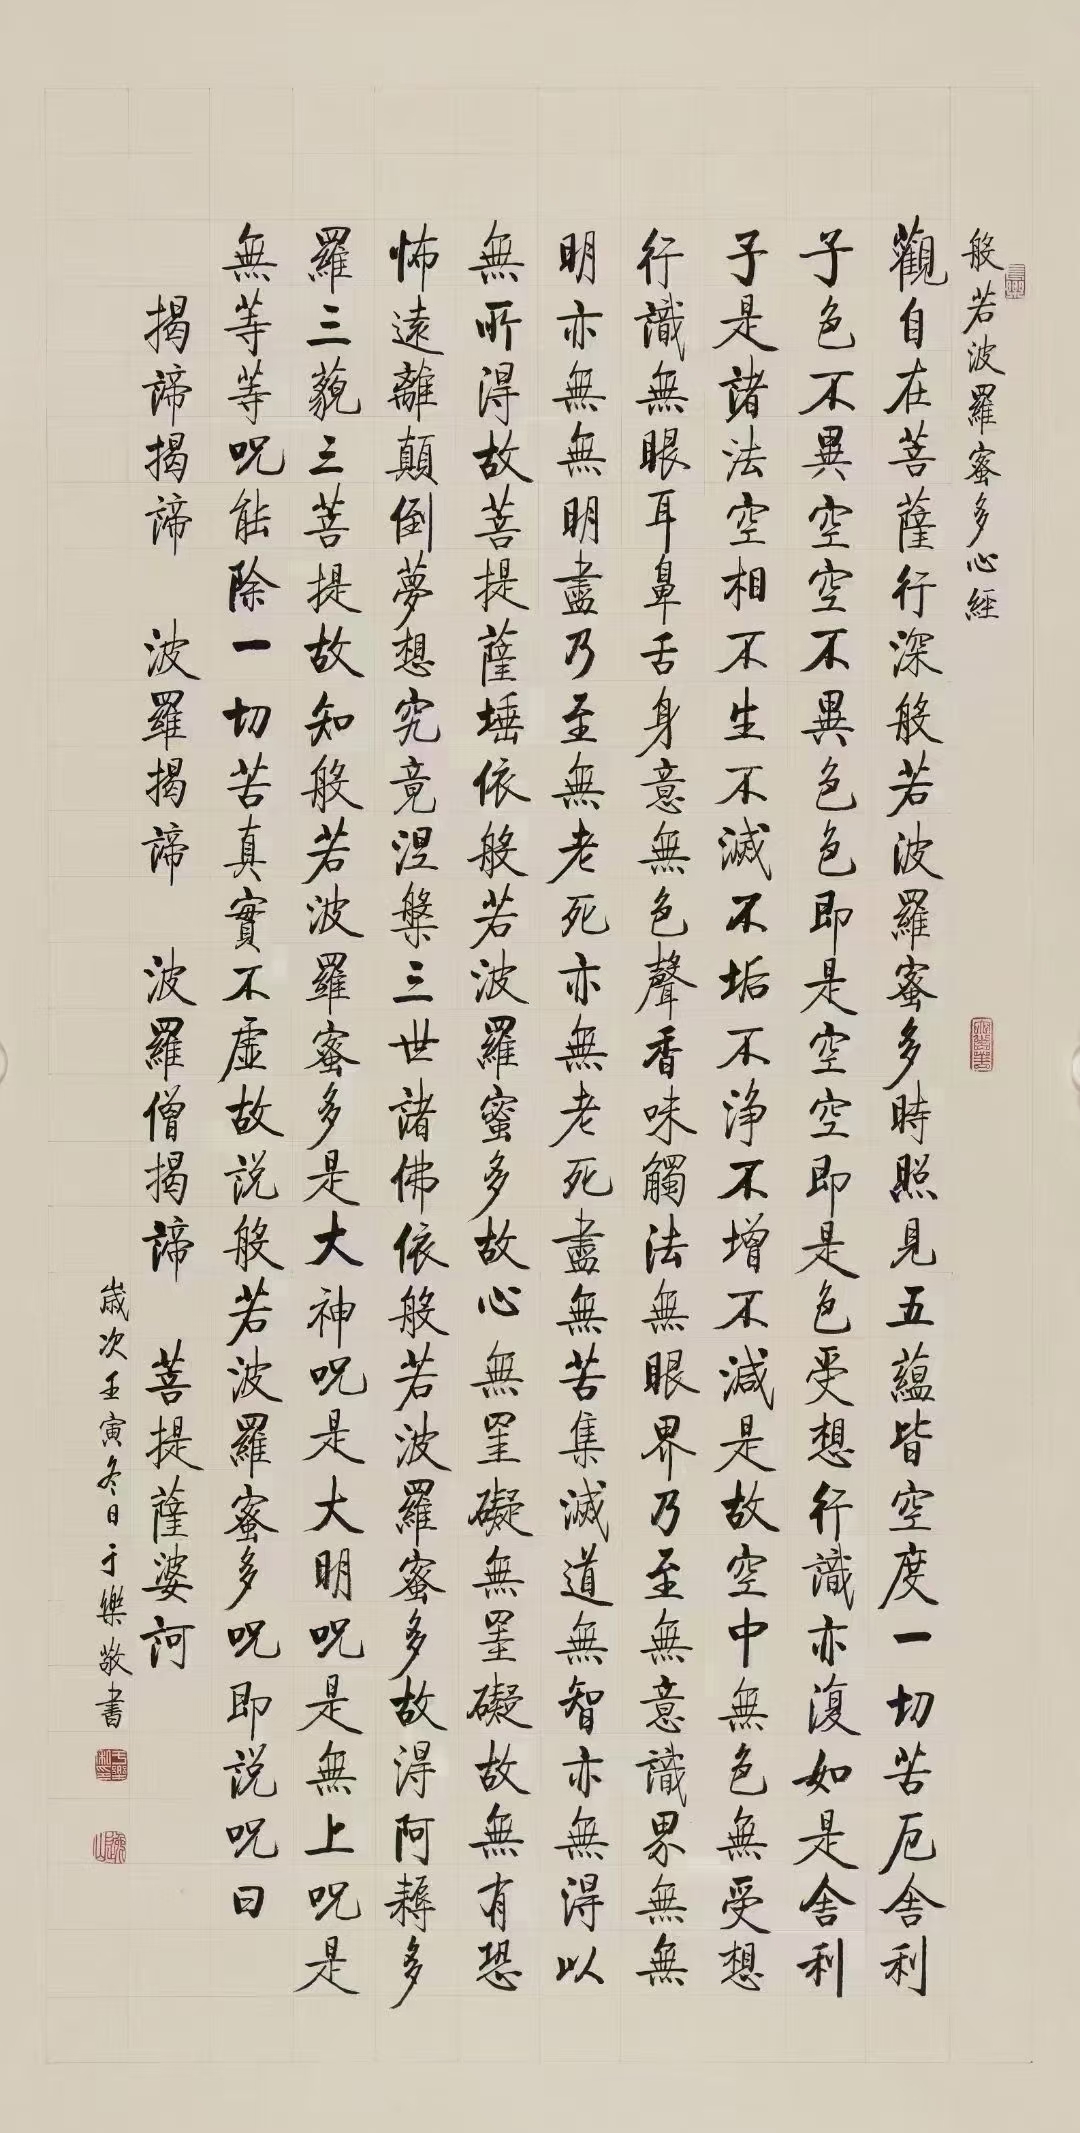 般若波羅蜜多心經
觀自在菩薩行深般若波羅蜜多時照見五蘊皆空度一切苦厄舍利
子色不異空空不異色色即是空空即是色受想行識亦復如是舍利
子是諸法空相不生不滅不垢不淨不增不減是故空中無色無受想
行識無眼耳鼻舌身意無色聲香味觸法無眼界乃至無意識界無無
明亦無無明盡乃至無老死亦無老死盡無苦集滅道無智亦無得以
無所得故菩提薩埵依般若波羅蜜多故心無罣礙無罣礙故無有恐
怖遠離顛倒夢想究竟涅槃三世諸佛依般若波羅蜜多故得阿耨多
羅三藐三菩提故知般若波羅蜜多是大神呪是大明呪是無上呪是
無等等呪能除一切苦真實不虛故説般若波羅蜜多呪即説呪曰
揭諦揭諦 波羅揭諦 波羅僧揭諦 菩提薩婆訶
歲次壬寅冬日于樂敬書